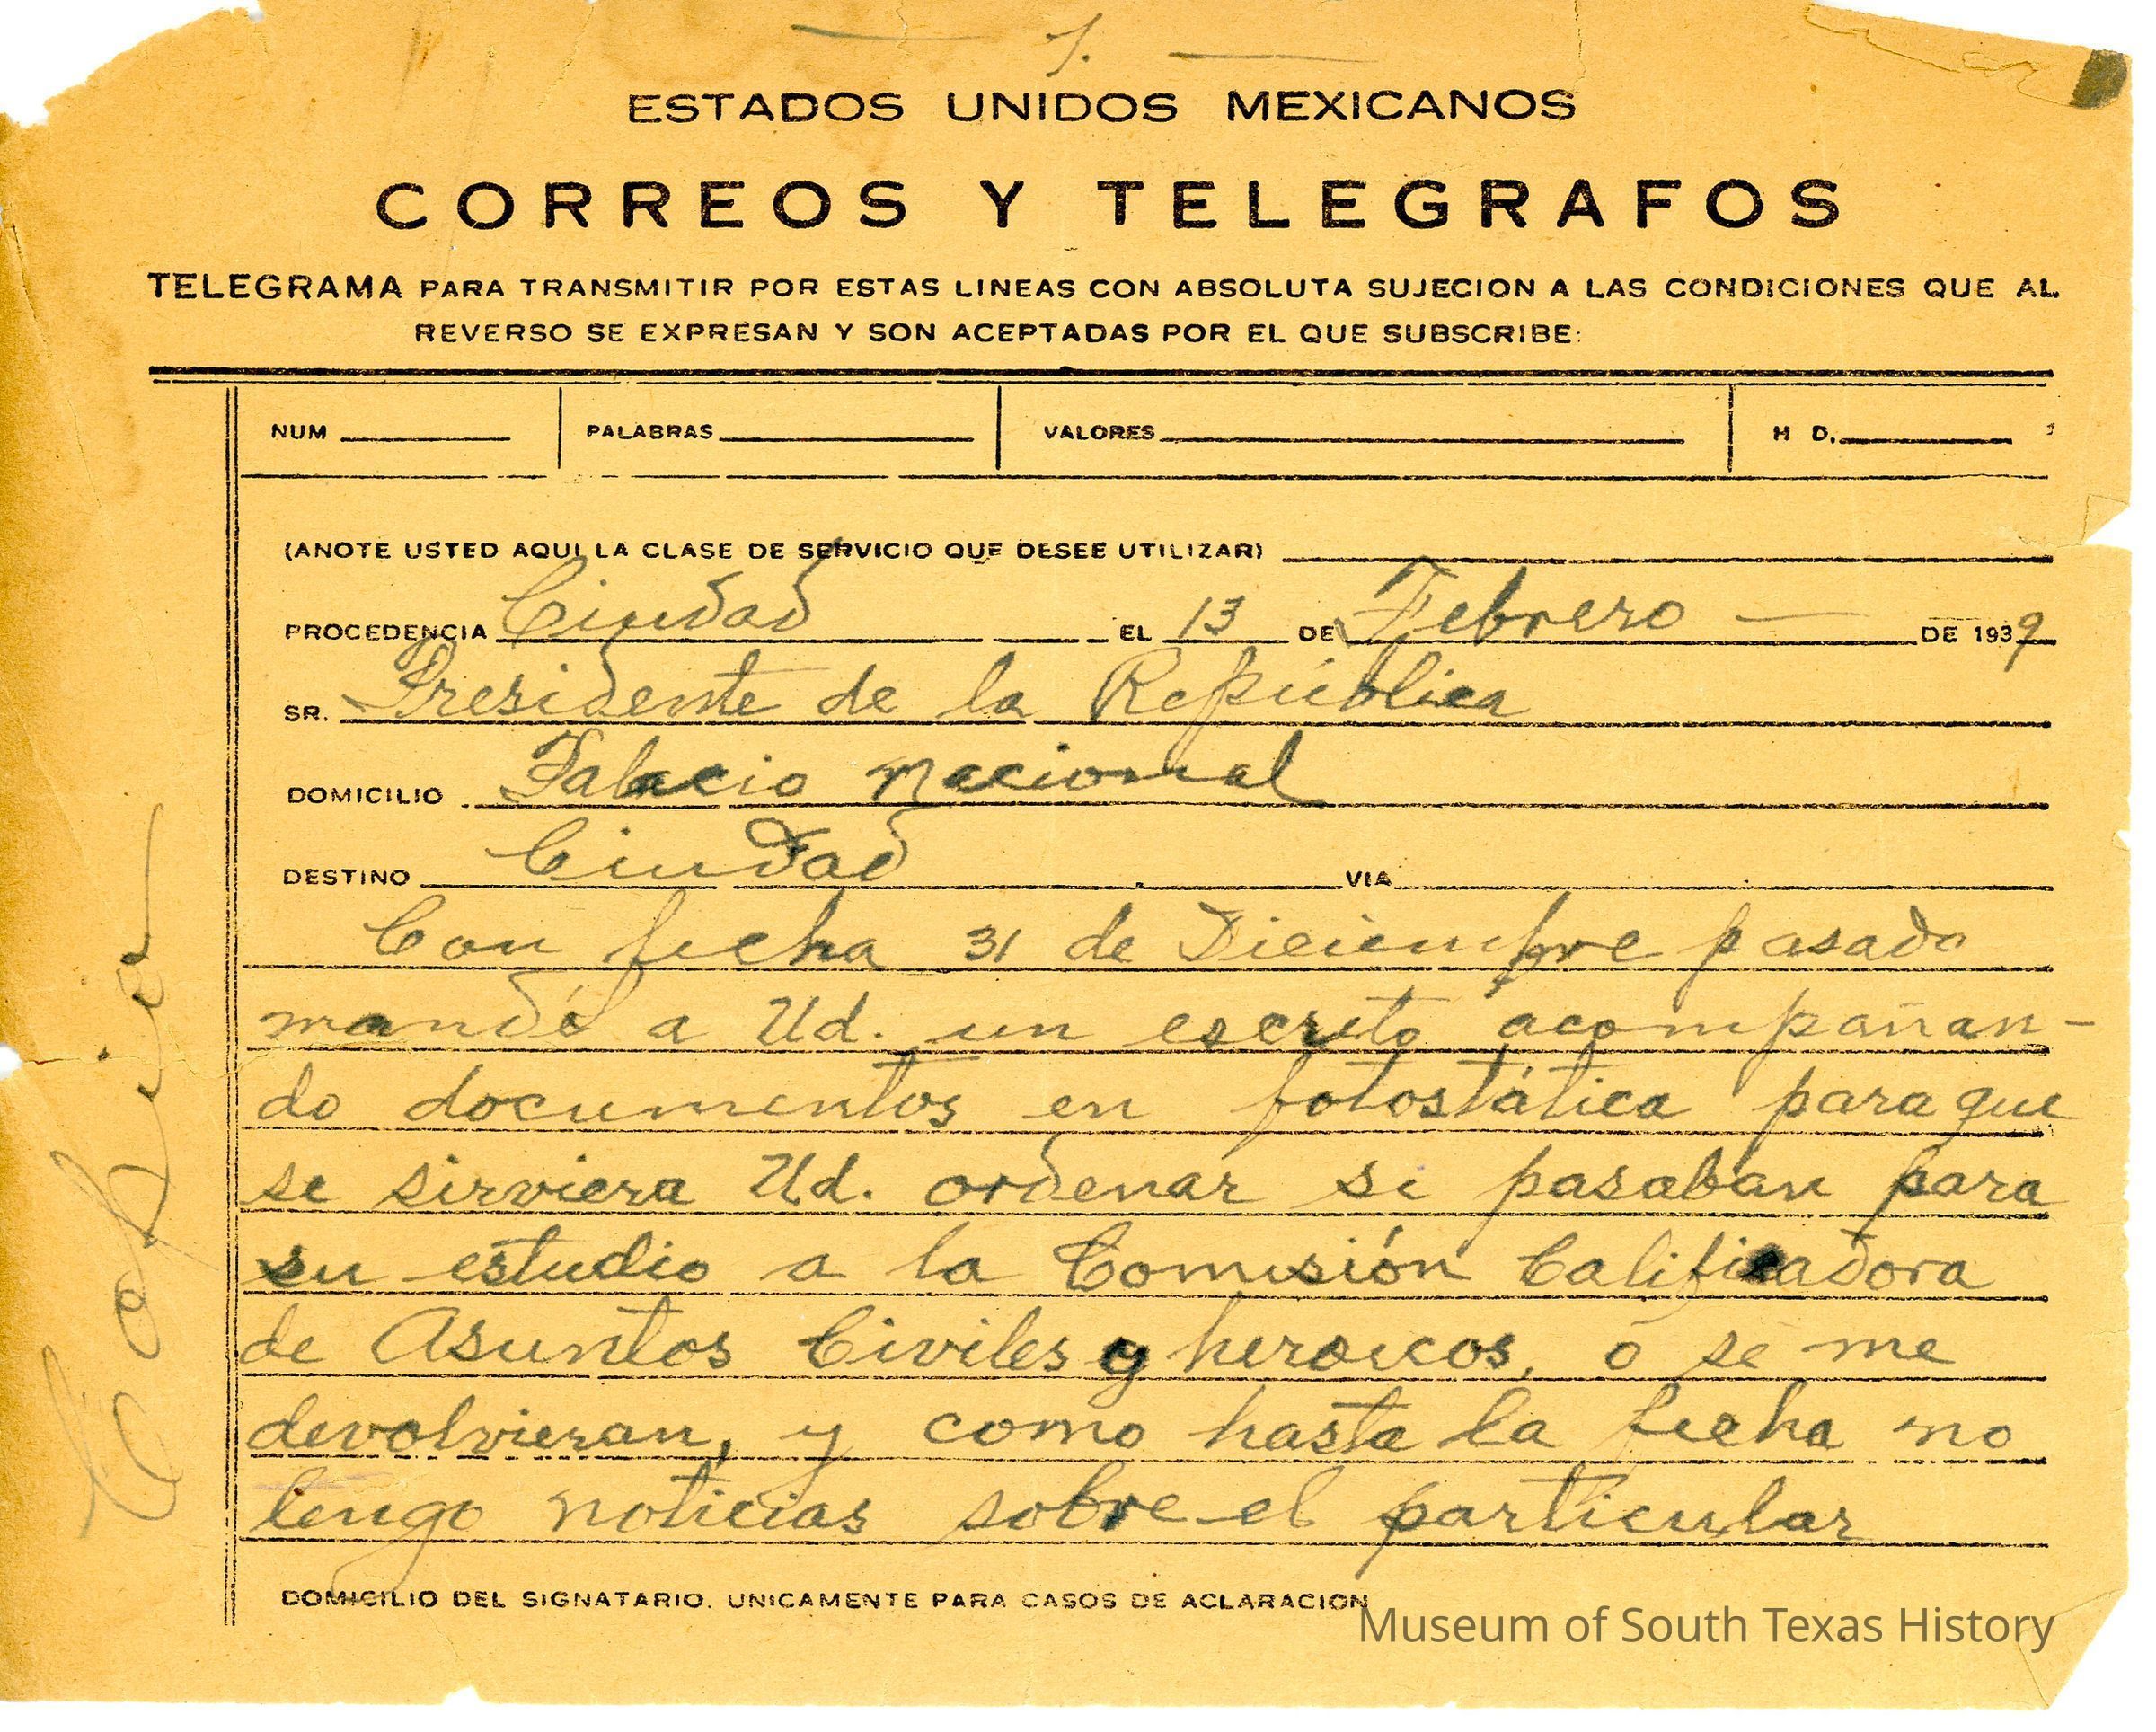 1.
ESTADOS UNIDOS MEXICANOS
CORREOS Y TELEGRAFOS
TELEGRAMA PARA TRANSMITIR POR ESTAS LINEAS CON ABSOLUTA SUJECION A LAS CONDICIONES QUE AL
REVERSO SE EXPRESAN Y SON ACEPTADAS POR EL QUE SUBSCRIBE:
NUM PALABRAS VALORES H D.
(ANOTE USTED AQUI LA CLASE DE SERVICIO QUE DESEE UTILIZAR)
PROCEDENCIA Ciudad EL 13 DE Febrero — DE 1939
SR. Presidente de la República
DOMICILIO Palacio Nacional
DESTINO Ciudad VIA
Con fecha 31 de Diciembre pasado
mandé a Ud. un escrito acompañan-
do documentos en fotostática para que
se sirviera Ud. ordenar si pasaban para
su estudio a la Comisión Calificadora
de Asuntos Civiles y heroicos, ó se me
devolvieran, y como hasta la fecha no
tengo noticias sobre el particular
DOMICILIO DEL SIGNATARIO. UNICAMENTE PARA CASOS DE ACLARACION
Copia
Museum of South Texas History